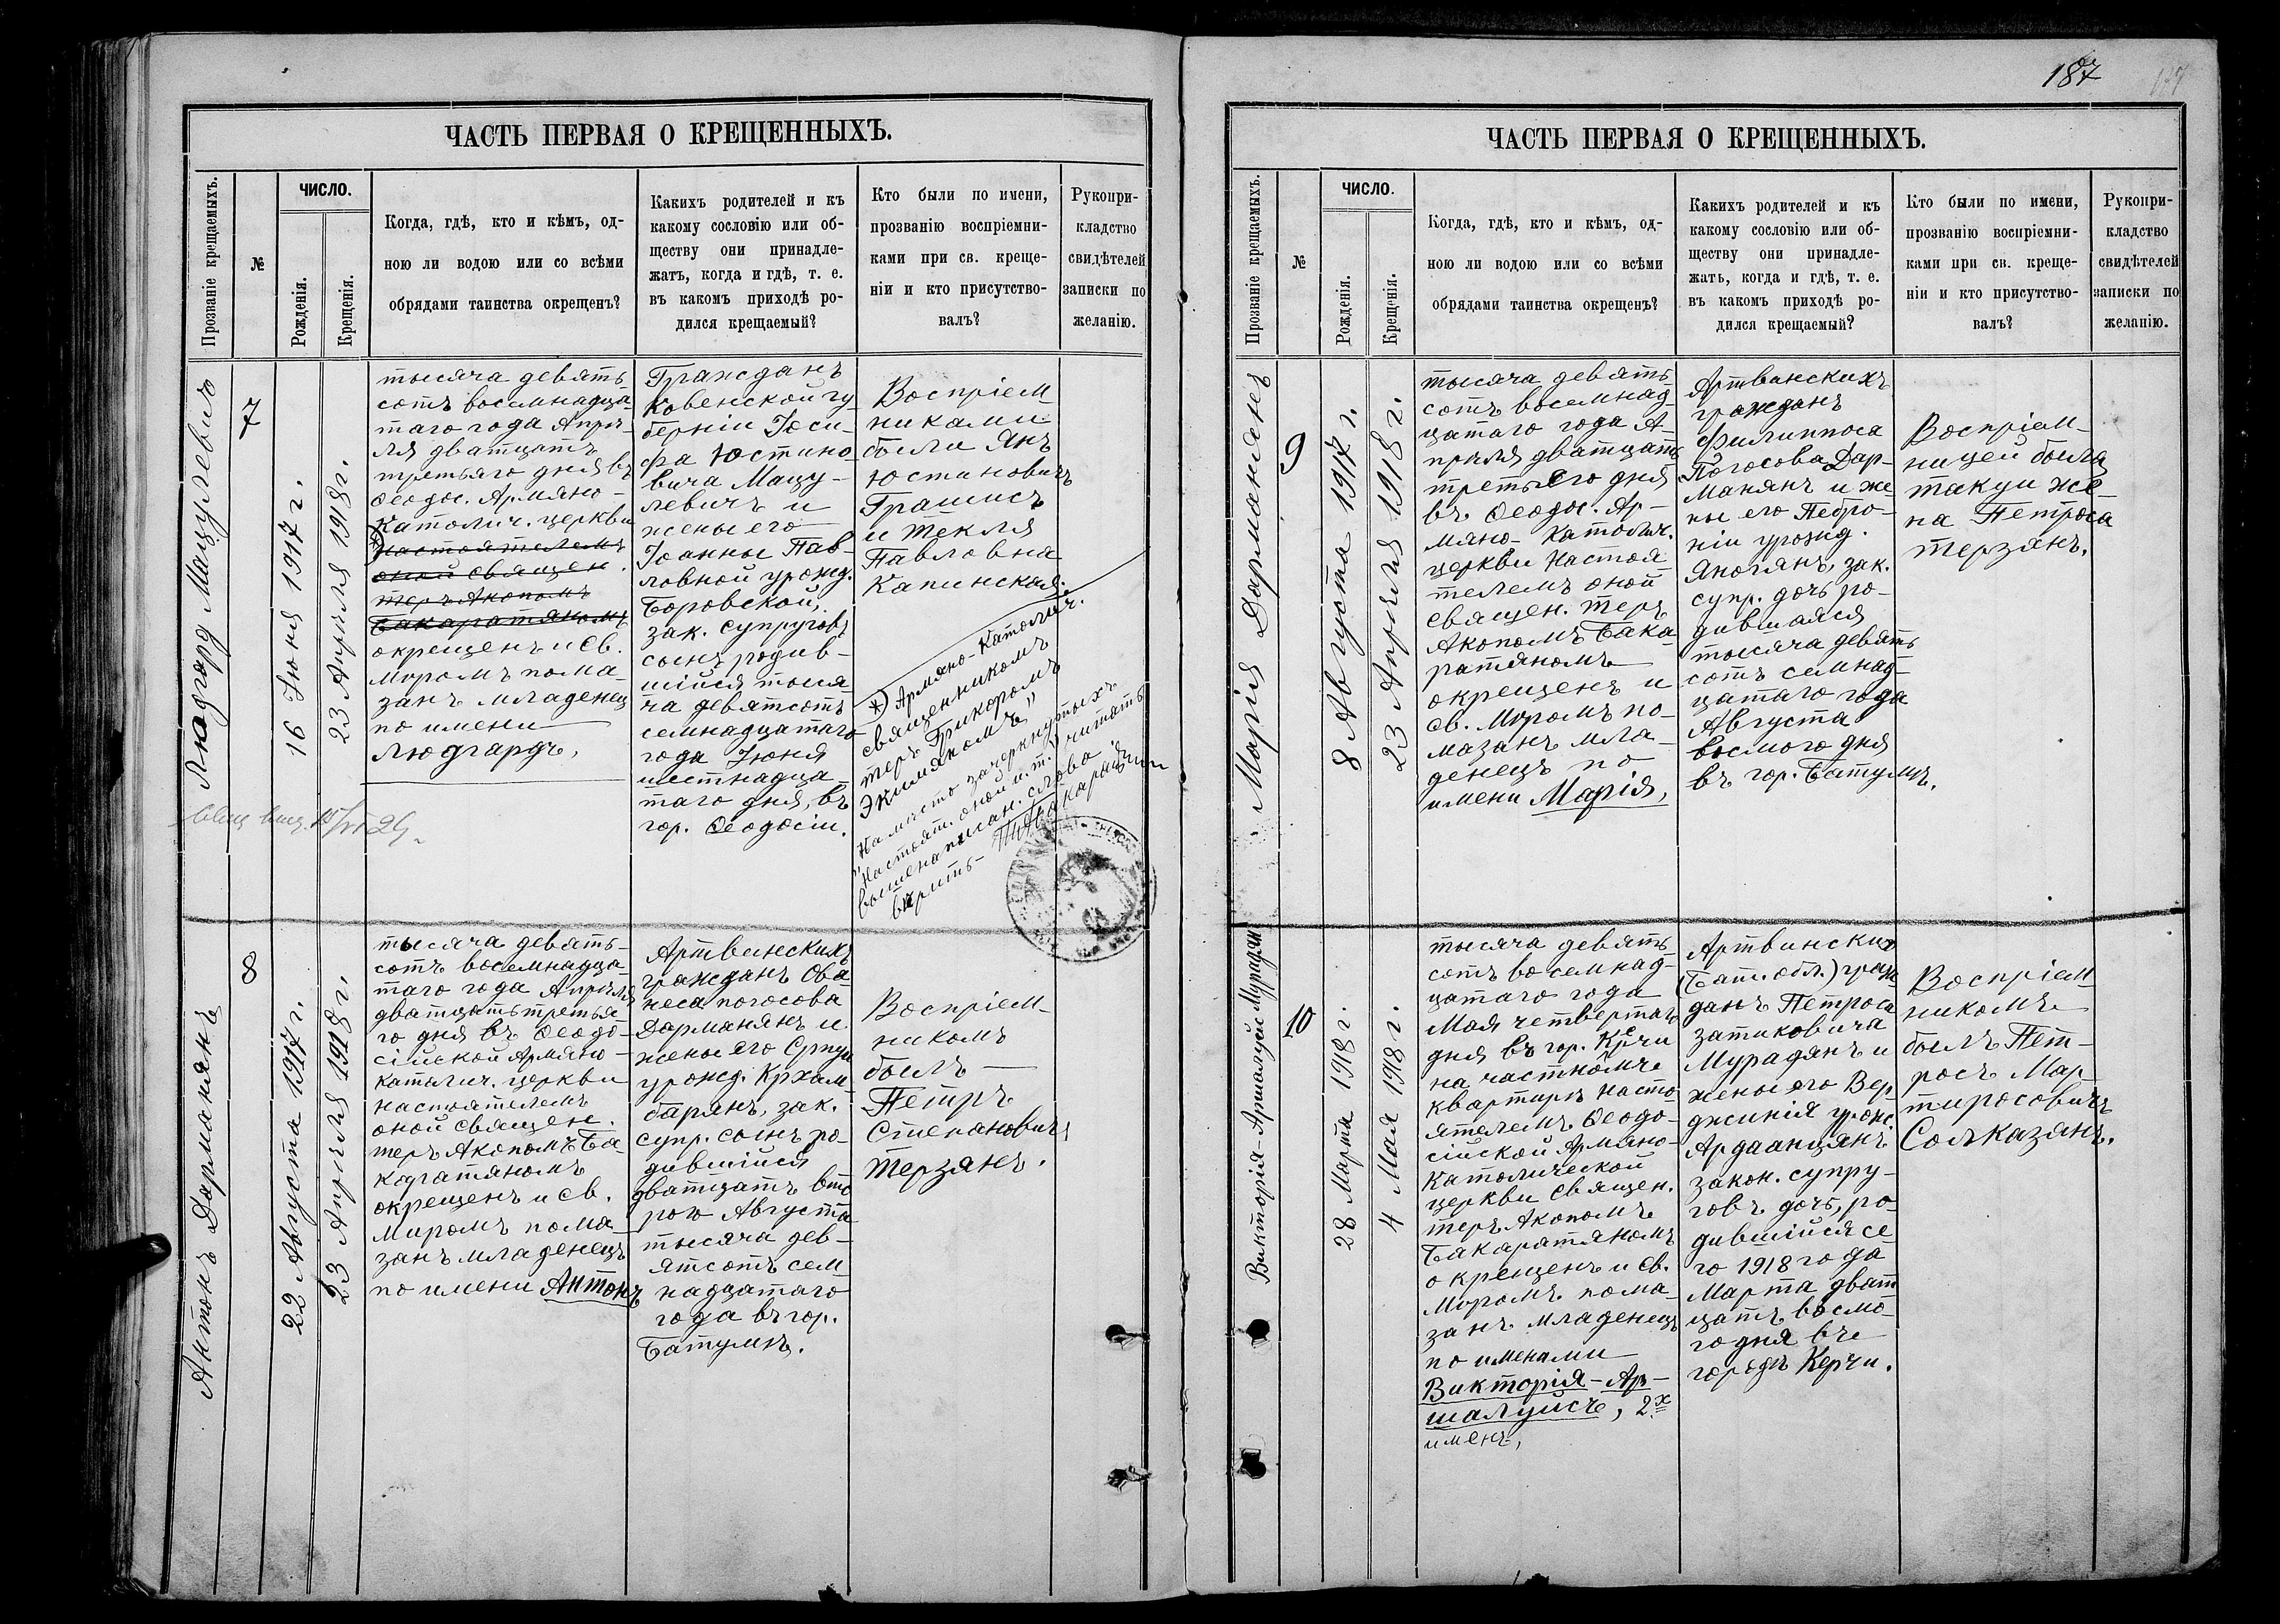 187
ЧАСТЬ ПЕРВАЯ О КРЕЩЕННЫХЪ.
Прозваніе крещаемыхъ.
№
ЧИСЛО.
Рожденія.
Крещенія.
Когда, гдѣ, кто и кѣмъ, од-
ною ли водою или со всѣми
обрядами таинства окрещенъ?
Какихъ родителей и къ
какому сословію или об-
ществу они принадле-
жатъ, когда и гдѣ, т. е.
въ какомъ приходѣ ро-
дился крещаемый?
Кто были по имени,
прозванію воспріемни-
ками при св. креще-
ніи и кто присутство-
валъ?
Рукопри-
кладство
свидѣтелей
записки по
желанію.
Людгард Мацулевич
7
16 Іюня 1917 г.
23 Апрѣля 1918 г.
тысяча девять-
сотъ восемнадца-
таго года Апрѣ-
ля дватцать
третьяго дня въ
Ѳеодос. Армяно-
Католич. церкви
*)
настоятелемъ
оной священ.
теръ Акопомъ
Бакаратяномъ
окрещенъ и Св.
Мѵромъ пома-
занъ младенец
по имени
Людгардъ,
Гражданъ
Ковенской гу-
берніи Іоси-
фа Юстино-
вича Мацу-
левичъ и
жены его
Іоанны Пав-
ловной урожд.
Боровской,
зак. супруговъ
сынъ родив-
шійся тыся-
ча девятсотъ
семнадцатаго
года Іюня
шестнадца-
таго дня, въ
гор. Ѳеодосіи.
Воспріем-
никами
были Янъ
Юстиновичъ
Грашисъ
и Текля
Павловна
Капинская.
*) Армяно-Католич.
священникомъ
теръ Григоромъ
Экимяномъ"
На мѣсто зачеркнутыхъ
"Настоят. оной и т." читать
вышенаписан. слово
вѣрить
8
Антонъ Дарманянъ
22 Августа 1917 г.
23 Апрѣля 1918 г.
тысяча девять-
сотъ восемнадца-
таго года Апрѣля
дватцать третья-
го дня въ Ѳеодо-
сійской Армяно-
католич. церкви
настоятелемъ
оной священ.
теръ Акопомъ Ба-
каратяномъ
окрещенъ и Св.
Миромъ пома-
занъ младенецъ
по имени Антонъ
Артвинскихъ
гражданъ Ова-
неса Погосова
Дарманянъ и
жены его Српуи
урожд. Крхам-
барянъ, зак.
супр. сынъ ро-
дившійся
дватцать вто-
рою Августа
тысяча дев-
ятсотъ сем-
надцатаго
года въ гор.
Батумѣ.
Воспріем-
никомъ
былъ
Петръ
Степановичъ
Терзянъ.
ЧАСТЬ ПЕРВАЯ О КРЕЩЕННЫХЪ.
Прозваніе крещаемыхъ.
№
ЧИСЛО.
Рожденія.
Крещенія.
Когда, гдѣ, кто и кѣмъ, од-
ною ли водою или со всѣми
обрядами таинства окрещенъ?
Какихъ родителей и къ
какому сословію или об-
ществу они принадле-
жатъ, когда и гдѣ, т. е.
въ какомъ приходѣ ро-
дился крещаемый?
Кто были по имени,
прозванію воспріемни-
ками при св. креще-
ніи и кто присутство-
валъ?
Рукопри-
кладство
свидѣтелей
записки по
желанію.
Марія Дарманянъ
9
8 Августа 1917 г.
23 Апрѣля 1918 г.
тысяча девять-
сотъ восемнад-
цатаго года А-
прѣля дватцать
третьяго дня
въ Ѳеодос. Ар-
мяно-Католич.
церкви Настоя-
телемъ оной
священ. теръ
Акопомъ Бака-
ратяномъ
окрещенъ и
св. Мѵромъ по-
мазанъ мла-
денецъ по
имени Марія,
Артвинскихъ
гражданъ
Филиппоса
Погосова Дар-
манянъ и же-
ны его Петро-
ніи урожд.
Яноглнъ, зак.
супр. дочь ро-
дившаяся
тысяча девять
сотъ семнад-
цатаго года
Августа
восмого дня
въ гор. Батумѣ.
Воспріем-
ницей была
Такуи же-
на Петроса
Терзянъ.
Викторія-Аршалуси Мурадян
10
28 Марта 1918 г.
4 Мая 1918 г.
тысяча девять
сотъ восемнад-
цатаго года
Мая четвертаго
дня въ гор. Керчи
на частномъ
квартирѣ насто-
ятелемъ Ѳеодо-
сійской Армяно-
Католической
церкви священ.
теръ Акопомъ
Бакаратяномъ
окрещенъ и св.
Мѵромъ пома-
занъ младенецъ
по именами
Викторія-Ар-
шалуйсъ, 2х
именъ,
Артвинских
(Бат. обл.) граж-
данъ Петроса
Затиковича
Мурадянъ и
жены его Вер-
джинія урожд.
Ардаанцянъ
закон. супру-
говъ дочь, ро-
дившійся се-
го 1918 года
Марта дват-
цать восмо-
го дня въ
городѣ Керчи.
Воспріем-
никомъ
былъ Пет-
росъ Мар-
тиросовичъ
Солказянъ.